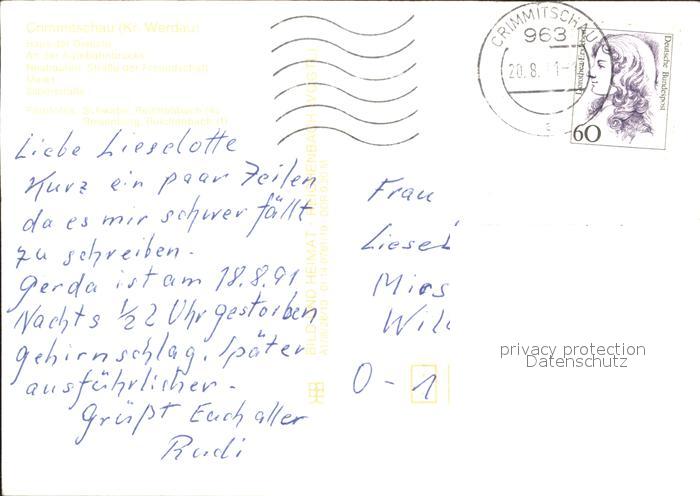 Crimmitschau (Kr. Werdau)
Haus der Dienste
An der Autobahnbrücke
Neubauten, Straße der Freundschaft
Markt
Silberstraße
Reichenbach (1)
Liebe Lieselotte
Kurz ein paar Zeilen
da es mir schwer fällt
zu schreiben.
Gerda ist am 18.8.91
Nachts ½2 Uhr gestorben
gehirnschlag. Später
ausführlicher.
Grüßt Euch aller
Rudi
BILD UND HEIMAT · REICHENBACH (VOGTL)
CRIMMITSCHAU
963
20.8.
Deutsche Bundespost
60
Frau
Liesel
Mios
Wil
O - 1
privacy protection
Datenschutz